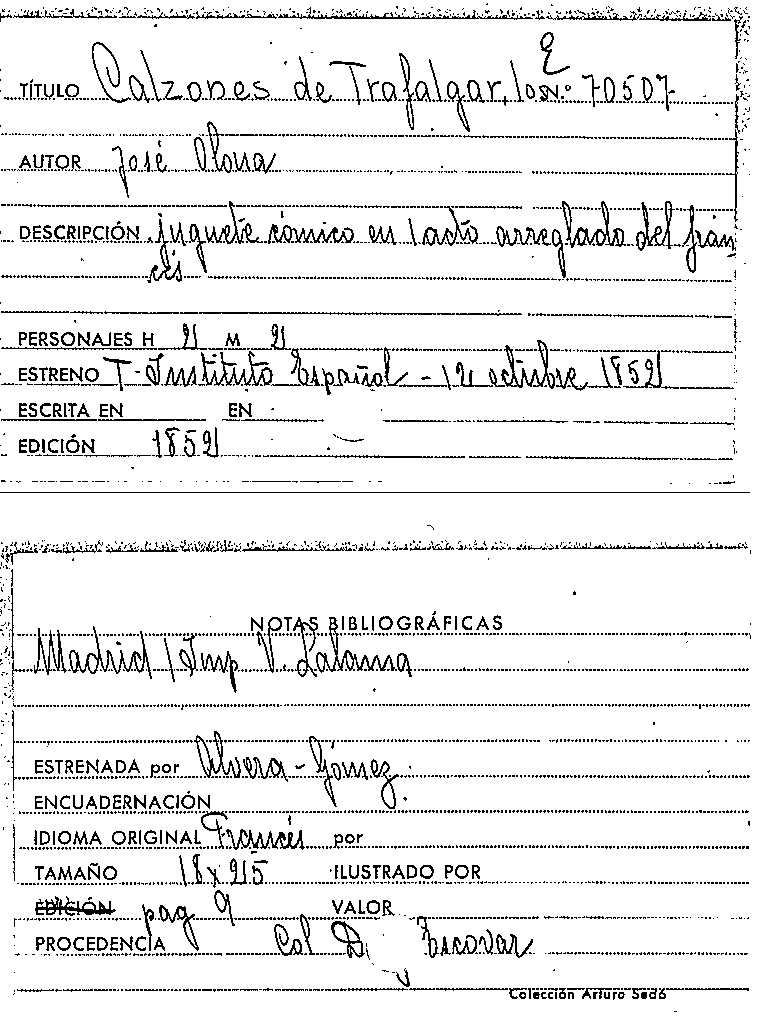 E
TÍTULO Calzones de Trafalgar, los N.º 70507
AUTOR José Olona
DESCRIPCIÓN juguete cómico en 1 acto arreglado del fran
cés
PERSONAJES H 2 M 2
ESTRENO T. Instituto Español - 12 octubre 1852
ESCRITA EN EN
EDICIÓN 1852
NOTAS BIBLIOGRÁFICAS
Madrid / Imp V. Lalama
ESTRENADA por Alvera - Gómez.
ENCUADERNACIÓN
IDIOMA ORIGINAL Francés por
TAMAÑO 18 x 25 ILUSTRADO POR
EDICIÓN pag 9 VALOR
PROCEDENCIA Col D. Escovar
Colección Arturo Sedó